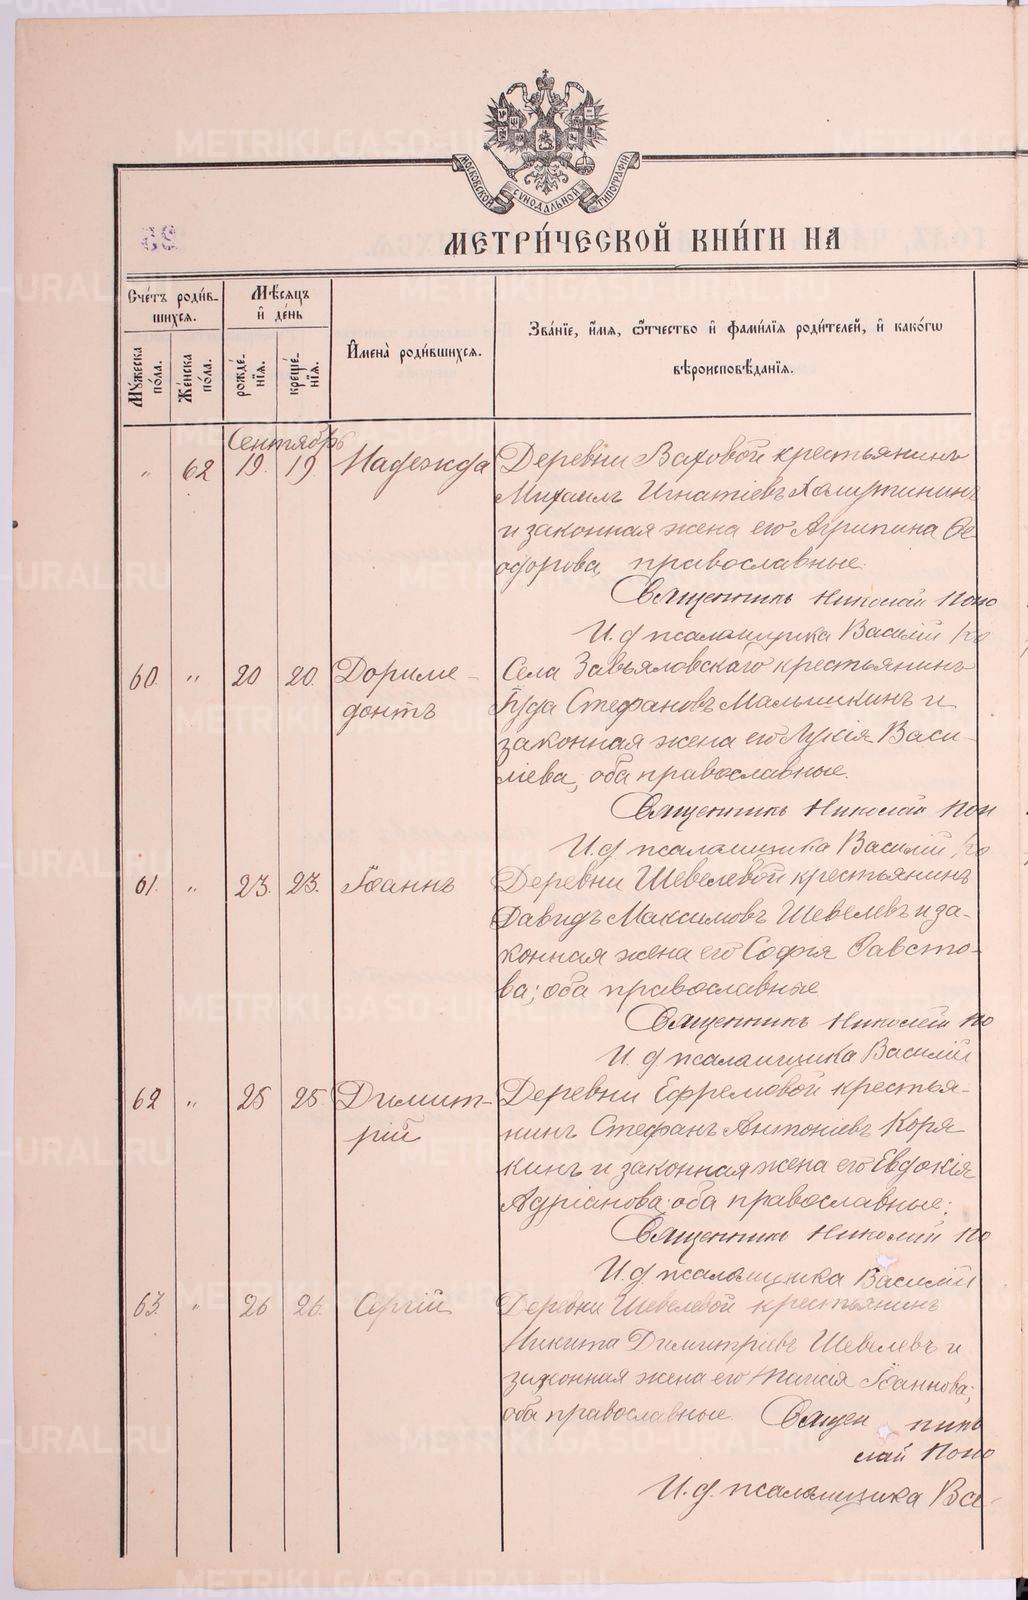 МОСКОВСКОЙ СУНОДАЛЬНОЙ ТИПОГРАФІИ
МЕТРИ́ЧЕСКОЙ КНИ́ГИ НА
Сче́тъ роди́в-
шихся.
Мѣ́сяцъ
и҆ де́нь
Мꙋ́жеска
по́ла.
Же́нска
по́ла.
рожде́-
нїя.
креще́-
нїя.
И҆мена̀ роди́вшихся.
Зва́нїе, и҆́мя, ѻ҆́тчество и҆ фами́лїя роди́телей, и҆ како́гѡ
вѣроисповѣ́данїя.
Сентябрь
" 62 19. 19. Надежда ДеревниВаховой крестьянинъ
Михаилъ Игнатіевъ
и законная жена его Агрипина Ѳе
одорова, православные.
Священникъ Николай Попо
И. д псаломщика Василій Ко
60. " 20 20. Дориме- Села Завьяловскаго крестьянинъ
донтъ Іуда Стефановъ Малышкинъ и
законная жена его Лукія Васи-
ліева, оба православные.
Священникъ Николай Поп
И. д. псаломщика Василій Ко
61. " 23. 23. Іоаннъ Деревни Шевелевой крестьянинъ
Давидъ Максимовъ Шевелевъ и за-
конная жена его Софія Савсто-
ва; оба православные
Священникъ Николай По
И. д псаломщика Василій
62 " 25 25. Димит- Деревни Ефремовой крестья-
рій нинъ Стефанъ Антоніевъ Коря
кинъ и законная жена его Евдокія
Адріанова; оба православные;
Священникъ Николай По
И. д. псаломщика Василій
63. " 26 26. Сергій Деревни Шевелевой крестьянинъ
Никита Димитріевъ Шевелевъ и
законная жена его Таисія Іоаннова;
оба православные. Священ никъ
лай Попо
И. д. псаломщика Вас
METRIKI.GASO-URAL.RU